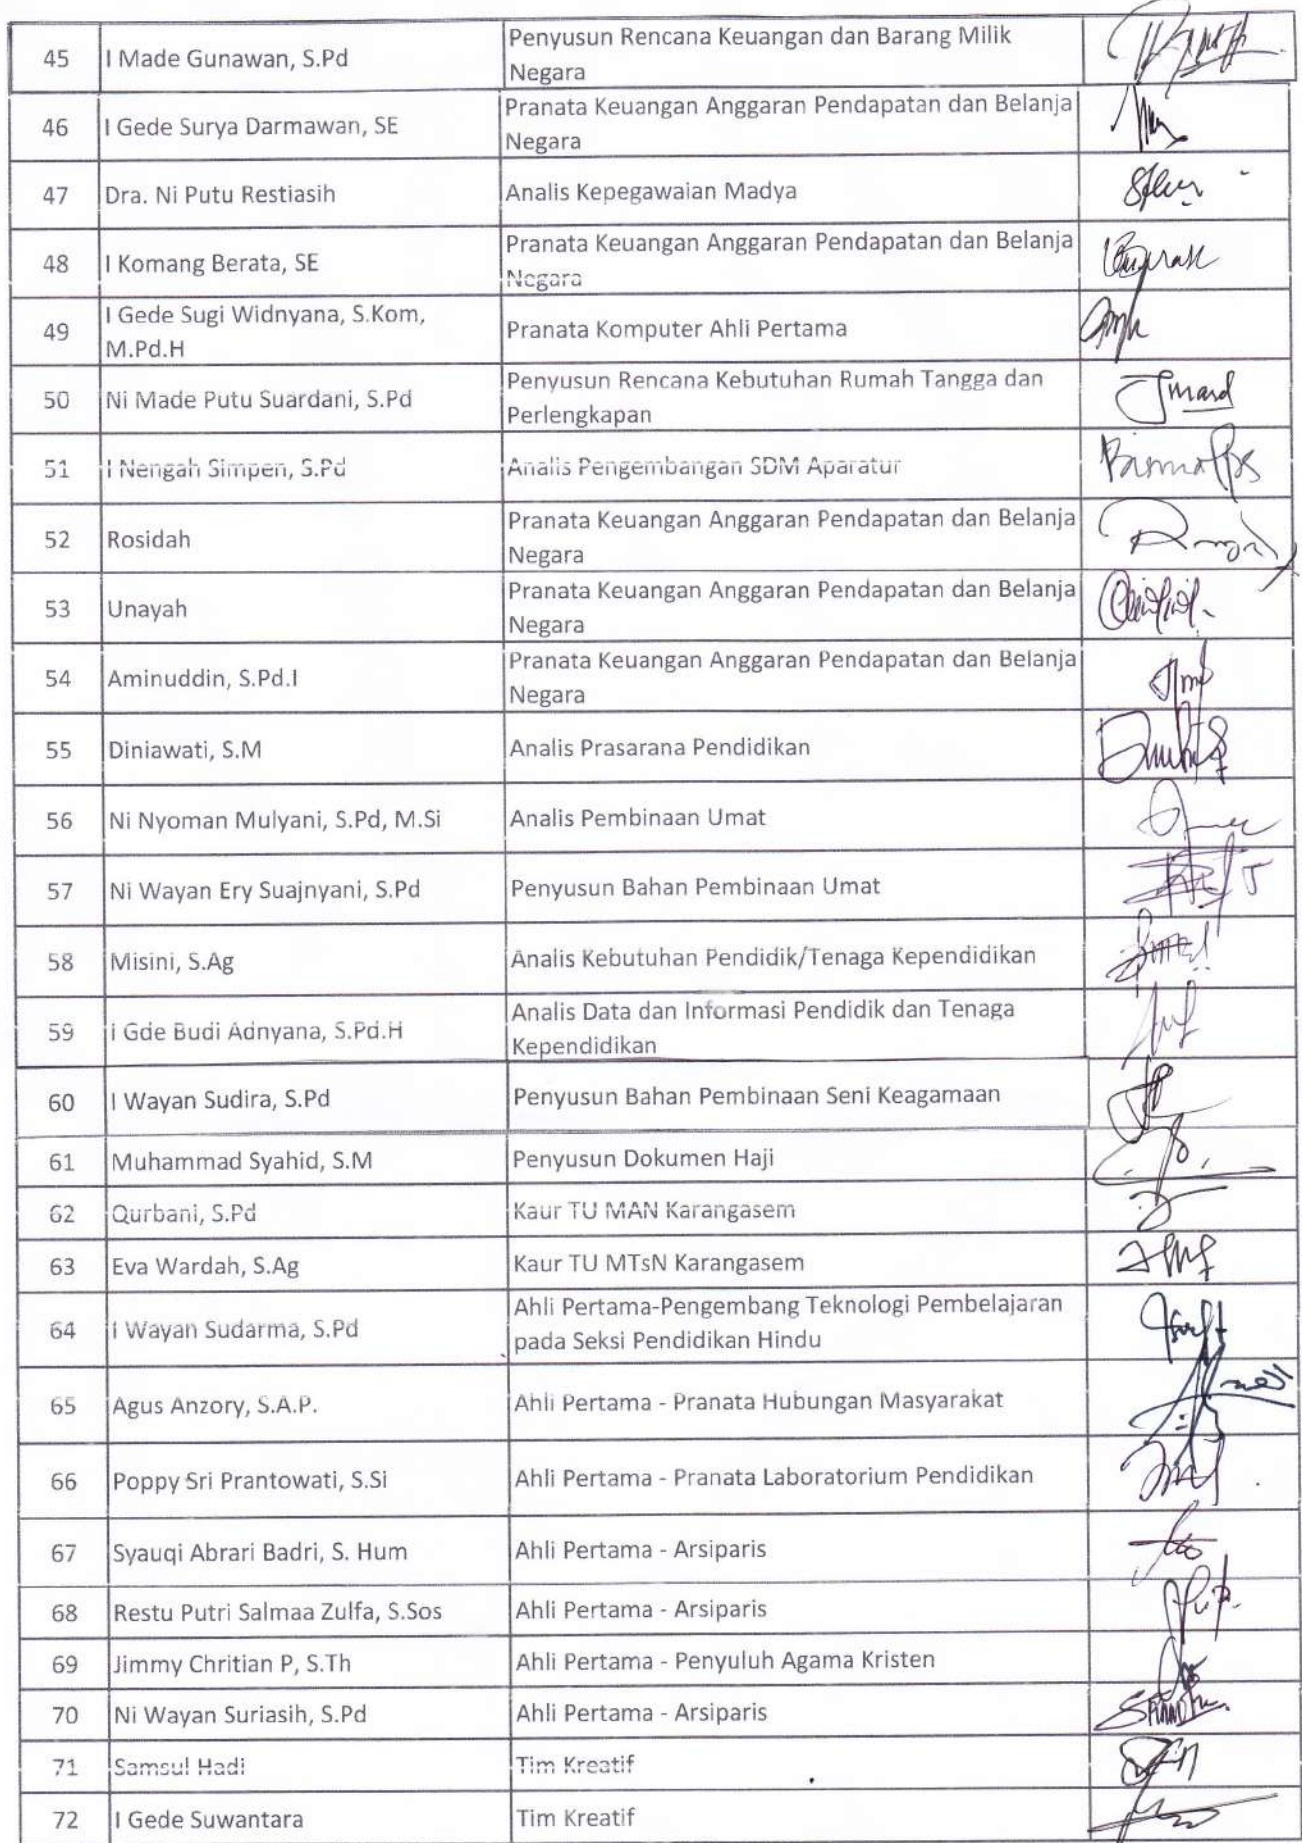 45 I Made Gunawan, S.Pd Penyusun Rencana Keuangan dan Barang Milik
Negara
46 I Gede Surya Darmawan, SE Pranata Keuangan Anggaran Pendapatan dan Belanja
Negara
47 Dra. Ni Putu Restiasih Analis Kepegawaian Madya
48 I Komang Berata, SE Pranata Keuangan Anggaran Pendapatan dan Belanja
Negara
49 I Gede Sugi Widnyana, S.Kom,
M.Pd.H Pranata Komputer Ahli Pertama
50 Ni Made Putu Suardani, S.Pd Penyusun Rencana Kebutuhan Rumah Tangga dan
Perlengkapan
51 I Nengah Simpen, S.Pd Analis Pengembangan SDM Aparatur
52 Rosidah Pranata Keuangan Anggaran Pendapatan dan Belanja
Negara
53 Unayah Pranata Keuangan Anggaran Pendapatan dan Belanja
Negara
54 Aminuddin, S.Pd.I Pranata Keuangan Anggaran Pendapatan dan Belanja
Negara
55 Diniawati, S.M Analis Prasarana Pendidikan
56 Ni Nyoman Mulyani, S.Pd, M.Si Analis Pembinaan Umat
57 Ni Wayan Ery Suajnyani, S.Pd Penyusun Bahan Pembinaan Umat
58 Misini, S.Ag Analis Kebutuhan Pendidik/Tenaga Kependidikan
59 I Gde Budi Adnyana, S.Pd.H Analis Data dan Informasi Pendidik dan Tenaga
Kependidikan
60 I Wayan Sudira, S.Pd Penyusun Bahan Pembinaan Seni Keagamaan
61 Muhammad Syahid, S.M Penyusun Dokumen Haji
62 Qurbani, S.Pd Kaur TU MAN Karangasem
63 Eva Wardah, S.Ag Kaur TU MTsN Karangasem
64 I Wayan Sudarma, S.Pd Ahli Pertama-Pengembang Teknologi Pembelajaran
pada Seksi Pendidikan Hindu
65 Agus Anzory, S.A.P. Ahli Pertama - Pranata Hubungan Masyarakat
66 Poppy Sri Prantowati, S.Si Ahli Pertama - Pranata Laboratorium Pendidikan
67 Syauqi Abrari Badri, S. Hum Ahli Pertama - Arsiparis
68 Restu Putri Salmaa Zulfa, S.Sos Ahli Pertama - Arsiparis
69 Jimmy Chritian P, S.Th Ahli Pertama - Penyuluh Agama Kristen
70 Ni Wayan Suriasih, S.Pd Ahli Pertama - Arsiparis
71 Samsul Hadi Tim Kreatif
72 I Gede Suwantara Tim Kreatif